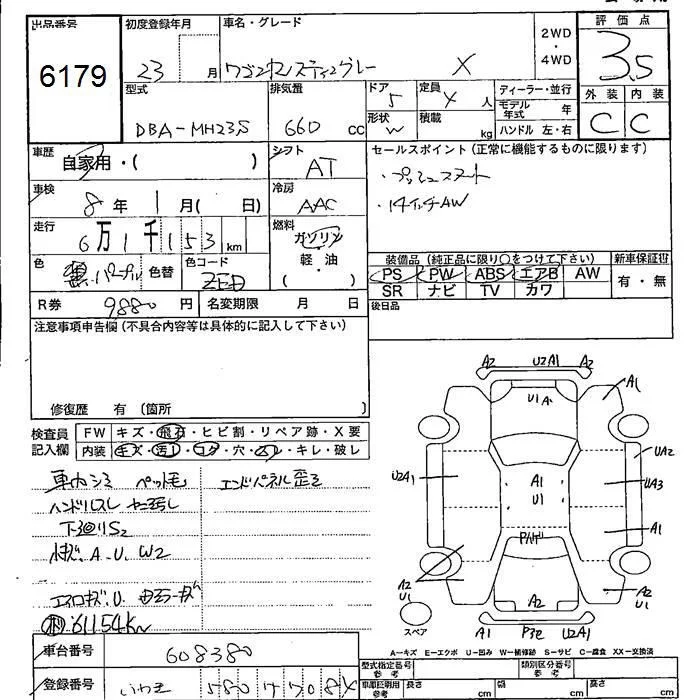 出品番号
6179
初度登録年月
23 月
車名・グレード
X
2WD
・
4WD
評価点
3.5
外装 内装
C C
型式
DBA-MH23S
排気量
660 cc
ドア
5
形状
W
定員
4 人
積載
kg
ディーラー・並行
モデル年式 年
ハンドル 左・右
車歴
自家用・( )
シフト
AT
セールスポイント(正常に機能するものに限ります)
・プッシュスタート
・14インチAW
車検
8 年 1 月( 日)
冷房
AAC
走行
6万1千153km
燃料
ガソリン
軽・油
( )
色
パープル
色替
色コード
ZED
装備品(純正品に限り○をつけて下さい)
新車保証書
PS PW ABS エアB AW
有・無
SR ナビ TV カワ
R券 9880 円
名変期限 月 日
後日品
注意事項申告欄(不具合内容等は具体的に記入して下さい)
修復歴 有 (箇所 )
検査員
記入欄
FW キズ・飛石・ヒビ割・リペア跡・X要
内装 キズ・汚れ・コゲ・穴・スレ・キレ・破レ
車内シミ ペット毛
エンドパネル歪ミ
下廻りS2
小キズ.A.U.W2
エアロキズ.U
61154Km
A2 U2A1 A2
U1 A
A1
U2A1
A1
U1
UA2
UA3
A1
A2
U1
A2
A2
U1
スペア
A1
U2A1
A-キズ E-エクボ U-凹み W-補修跡 S-サビ C-腐食 XX-交換済
車台番号
608380
型式指定番号
参考
類別区分番号
参考
登録番号
いわき 580
車庫証明用
参考
長さ cm
幅 cm
高さ cm